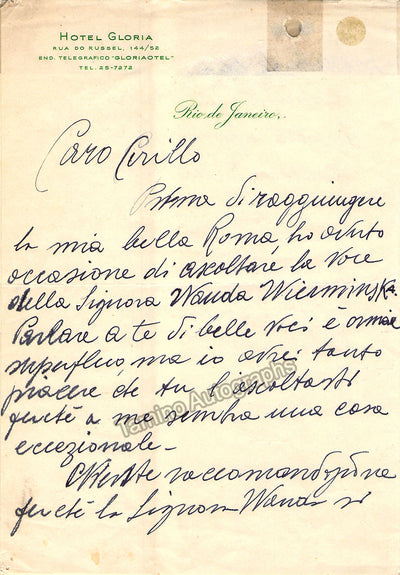 HOTEL GLORIA
RUA DO RUSSEL, 144/52
END. TELEGRAFICO "GLORIAOTEL"
TEL. 25-7272
Rio de Janeiro,
Caro Cirillo
Prima di raggiungere
la mia bella Roma, ho avuto
occasione di ascoltare la voce
della Signora Wanda Wierminska.
Parlare a te di belle voci è ormai
superfluo, ma io avrei tanto
piacere che tu l'ascoltassi
perché a me sembra una cosa
eccezionale -
Tamino Autographs
raccomandazione
perché la Signora Wanda si